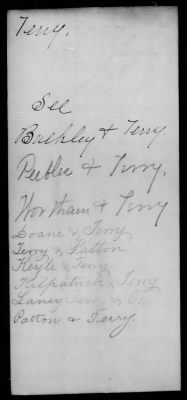 Terry.
See
Buckley & Terry.
Peebles & Terry.
Wortham & Terry
Doane & Terry
Terry & Patton
Keyle & Terry
Kilpatrick & Terry
Laney Terry & Co
Patton & Terry.